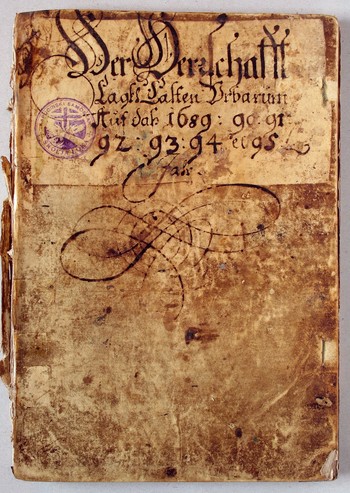 Der Herrschafft
Urbarium
Auf das 1689: 90: 91:
92: 93: 94 et 95
Jahr